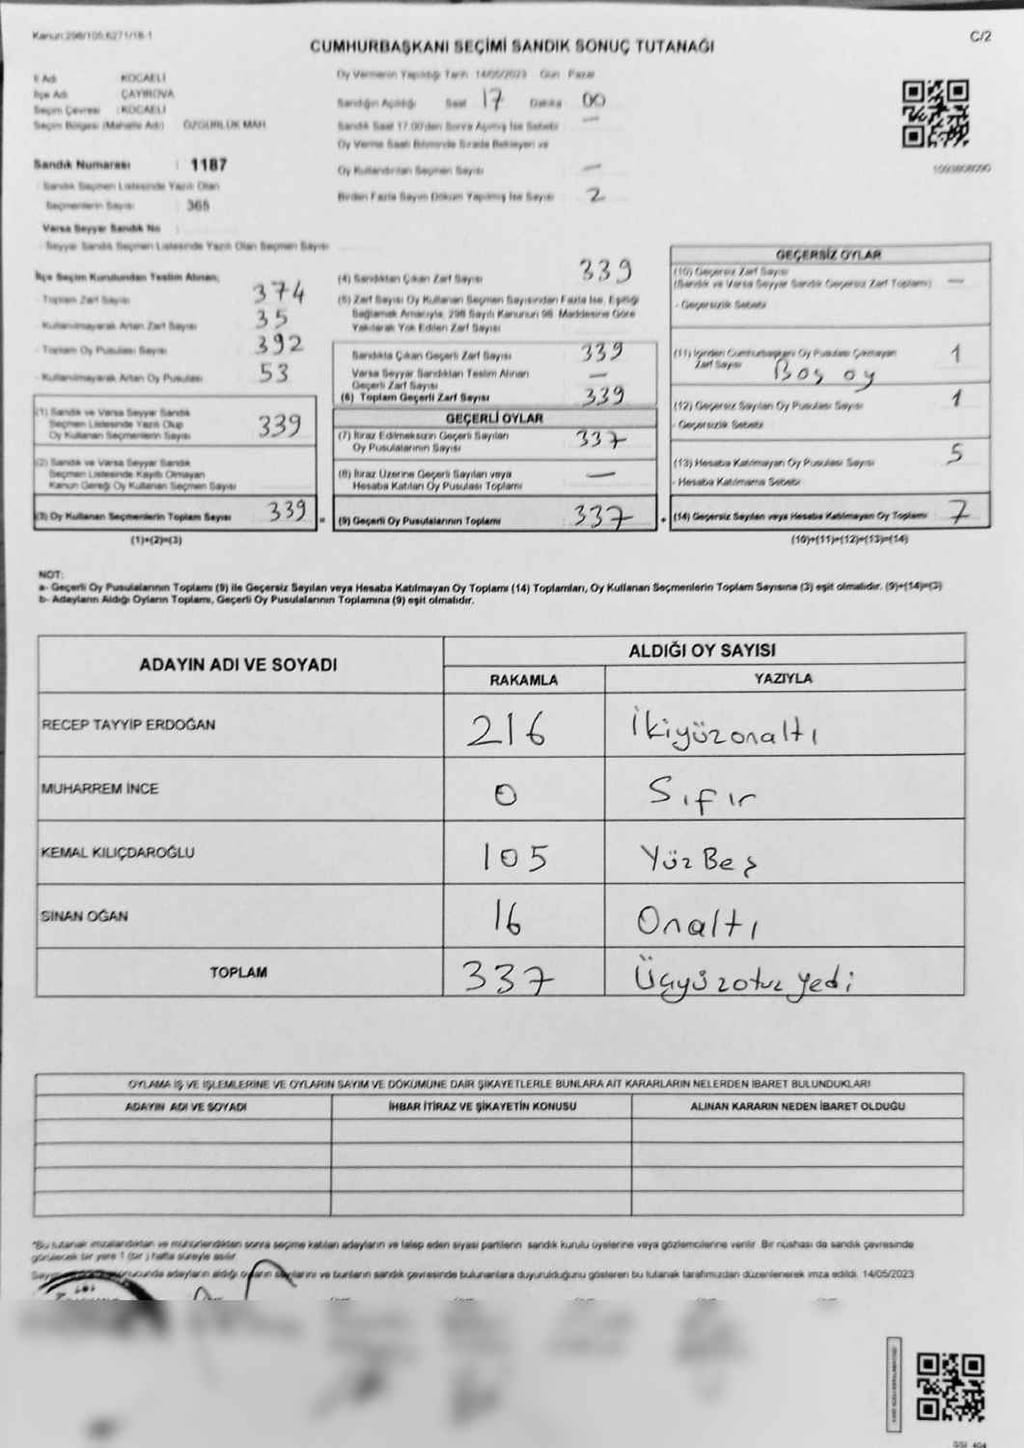 Kanun:298/105,6271/18-1
C/2
CUMHURBAŞKANI SEÇİMİ SANDIK SONUÇ TUTANAĞI
İl Adı KOCAELİ
İlçe Adı ÇAYIROVA
Seçim Çevresi : KOCAELİ
Seçim Bölgesi (Mahalle Adı) ÖZGÜRLÜK MAH.
Sandık Numarası : 1187
Sandık Seçmen Listesinde Yazılı Olan
Seçmenlerin Sayısı : 365
Varsa Seyyar Sandık No
Seyyar Sandık Seçmen Listesinde Yazılı Olan Seçmen Sayısı
Oy Vermenin Yapıldığı Tarih : 14/05/2023 Gün : Pazar
Sandığın Açıldığı Saat 17 Dakika 00
Sandık Saat 17.00'den Sonra Açılmış İse Sebebi —
Oy Verme Saati Bitiminde Sırada Bekleyen ve
Oy Kullandırılan Seçmen Sayısı —
Birden Fazla Sayım Döküm Yapılmış İse Sayısı 2
1093808090
İlçe Seçim Kurulundan Teslim Alınan;
- Toplam Zarf Sayısı 374
- Kullanılmayarak Artan Zarf Sayısı 35
- Toplam Oy Pusulası Sayısı 392
- Kullanılmayarak Artan Oy Pusulası 53
(1) Sandık ve Varsa Seyyar Sandık
Seçmen Listesinde Yazılı Olup
Oy Kullanan Seçmenlerin Sayısı 339
(2) Sandık ve Varsa Seyyar Sandık
Seçmen Listesinde Kayıtlı Olmayan
Kanun Gereği Oy Kullanan Seçmen Sayısı
(3) Oy Kullanan Seçmenlerin Toplam Sayısı 339
(1)+(2)=(3)
(4) Sandıktan Çıkan Zarf Sayısı 339
(5) Zarf Sayısı Oy Kullanan Seçmen Sayısından Fazla İse, Eşitliği
Sağlamak Amacıyla, 298 Sayılı Kanunun 98. Maddesine Göre
Yakılarak Yok Edilen Zarf Sayısı
Sandıkta Çıkan Geçerli Zarf Sayısı 339
Varsa Seyyar Sandıktan Teslim Alınan
Geçerli Zarf Sayısı —
(6) Toplam Geçerli Zarf Sayısı 339
GEÇERLİ OYLAR
(7) İtiraz Edilmeksizin Geçerli Sayılan
Oy Pusulalarının Sayısı 337
(8) İtiraz Üzerine Geçerli Sayılan veya
Hesaba Katılan Oy Pusulası Toplamı —
= (9) Geçerli Oy Pusulalarının Toplamı 337
GEÇERSİZ OYLAR
(10) Geçersiz Zarf Sayısı
(Sandık ve Varsa Seyyar Sandık Geçersiz Zarf Toplamı) —
- Geçersizlik Sebebi
(11) İçinden Cumhurbaşkanı Oy Pusulası Çıkmayan
Zarf Sayısı 1
Boş oy
(12) Geçersiz Sayılan Oy Pusulası Sayısı 1
- Geçersizlik Sebebi
(13) Hesaba Katılmayan Oy Pusulası Sayısı 5
- Hesaba Katılmama Sebebi
+ (14) Geçersiz Sayılan veya Hesaba Katılmayan Oy Toplamı 7
(10)+(11)+(12)+(13)=(14)
NOT:
a- Geçerli Oy Pusulalarının Toplamı (9) ile Geçersiz Sayılan veya Hesaba Katılmayan Oy Toplamı (14) Toplamları, Oy Kullanan Seçmenlerin Toplam Sayısına (3) eşit olmalıdır. (9)+(14)=(3)
b- Adayların Aldığı Oyların Toplamı, Geçerli Oy Pusulalarının Toplamına (9) eşit olmalıdır.
ADAYIN ADI VE SOYADI ALDIĞI OY SAYISI
RAKAMLA YAZIYLA
RECEP TAYYİP ERDOĞAN 216 İkiyüzonaltı
MUHARREM İNCE 0 Sıfır
KEMAL KILIÇDAROĞLU 105 YüzBeş
SİNAN OĞAN 16 Onaltı
TOPLAM 337 Üçyüzotuzyedi
OYLAMA İŞ VE İŞLEMLERİNE VE OYLARIN SAYIM VE DÖKÜMÜNE DAİR ŞİKAYETLERLE BUNLARA AİT KARARLARIN NELERDEN İBARET BULUNDUKLARI
ADAYIN ADI VE SOYADI İHBAR İTİRAZ VE ŞİKAYETİN KONUSU ALINAN KARARIN NEDEN İBARET OLDUĞU
*Bu tutanak imzalandıktan ve mühürlendikten sonra seçime katılan adayların ve talep eden siyasi partilerin sandık kurulu üyelerine veya gözlemcilerine verilir. Bir nüshası da sandık çevresinde
görülecek bir yere 1 (bir) hafta süreyle asılır.
sonucunda adayların aldığı oyların sayılarını ve bunların sandık çevresinde bulunanlara duyurulduğunu gösteren bu tutanak tarafımızdan düzenlenerek imza edildi. 14/05/2023